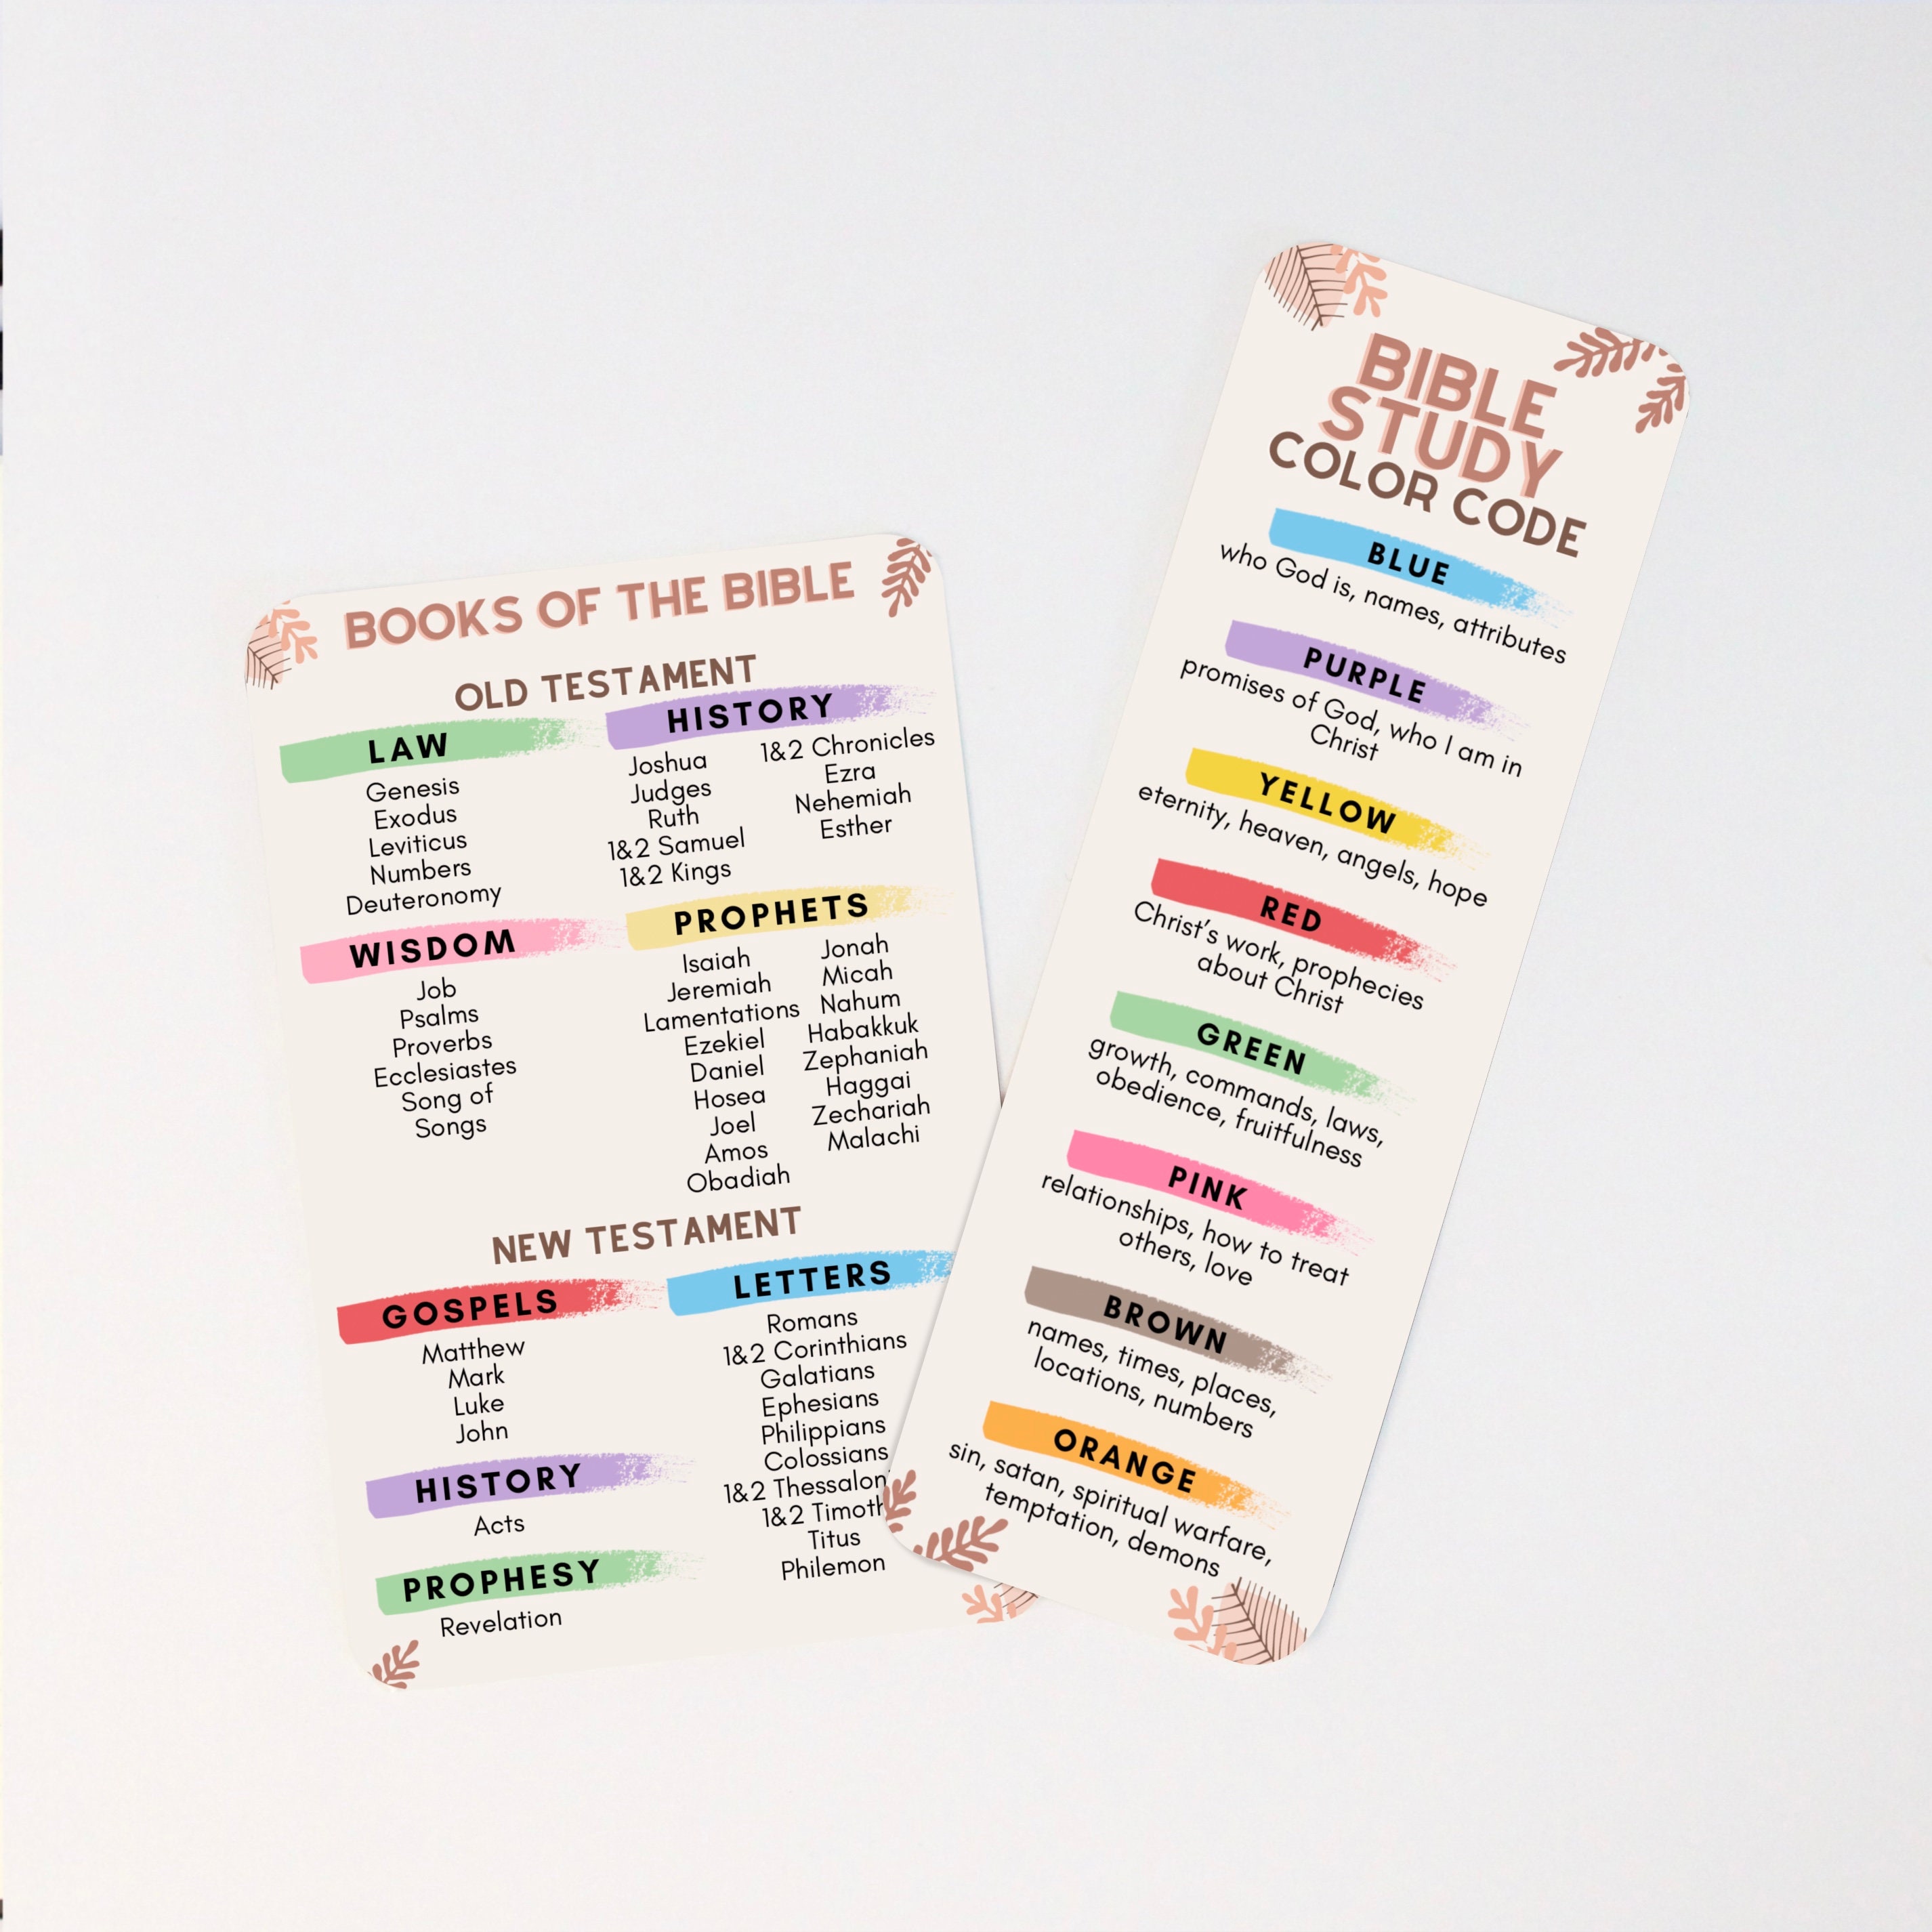 BOOKS OF THE BIBLE
OLD TESTAMENT
LAW
Genesis
Exodus
Leviticus
Numbers
Deuteronomy
HISTORY
Joshua
Judges
Ruth
1&2 Samuel
1&2 Kings
1&2 Chronicles
Ezra
Nehemiah
Esther
WISDOM
Job
Psalms
Proverbs
Ecclesiastes
Song of
Songs
PROPHETS
Isaiah
Jeremiah
Lamentations
Ezekiel
Daniel
Hosea
Joel
Amos
Obadiah
Jonah
Micah
Nahum
Habakkuk
Zephaniah
Haggai
Zechariah
Malachi
NEW TESTAMENT
GOSPELS
Matthew
Mark
Luke
John
HISTORY
Acts
PROPHESY
Revelation
LETTERS
Romans
1&2 Corinthians
Galatians
Ephesians
Philippians
Colossians
1&2 Thessalon
1&2 Timoth
Titus
Philemon
BIBLE
STUDY
COLOR CODE
BLUE
who God is, names, attributes
PURPLE
promises of God, who I am in
Christ
YELLOW
eternity, heaven, angels, hope
RED
Christ's work, prophecies
about Christ
GREEN
growth, commands, laws,
obedience, fruitfulness
PINK
relationships, how to treat
others, love
BROWN
names, times, places,
locations, numbers
ORANGE
sin, satan, spiritual warfare,
temptation, demons